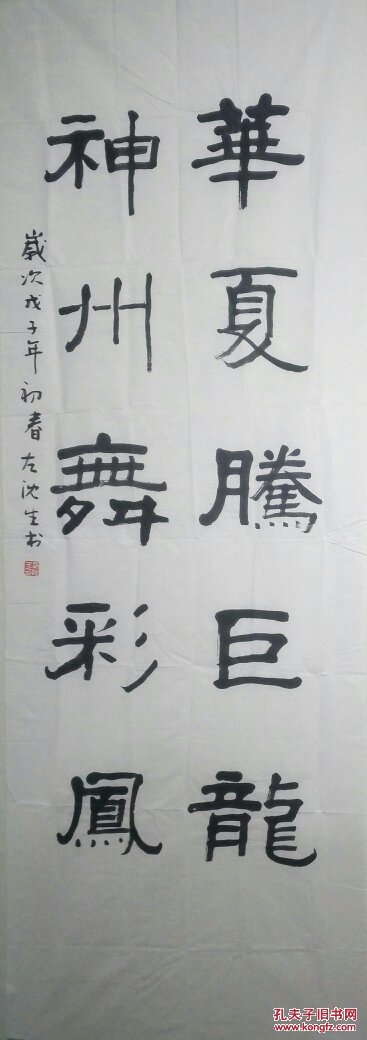 華夏騰巨龍
神州舞彩鳳
歲次戊子年初春左沈生书
孔夫子旧书网
www.kongfz.com